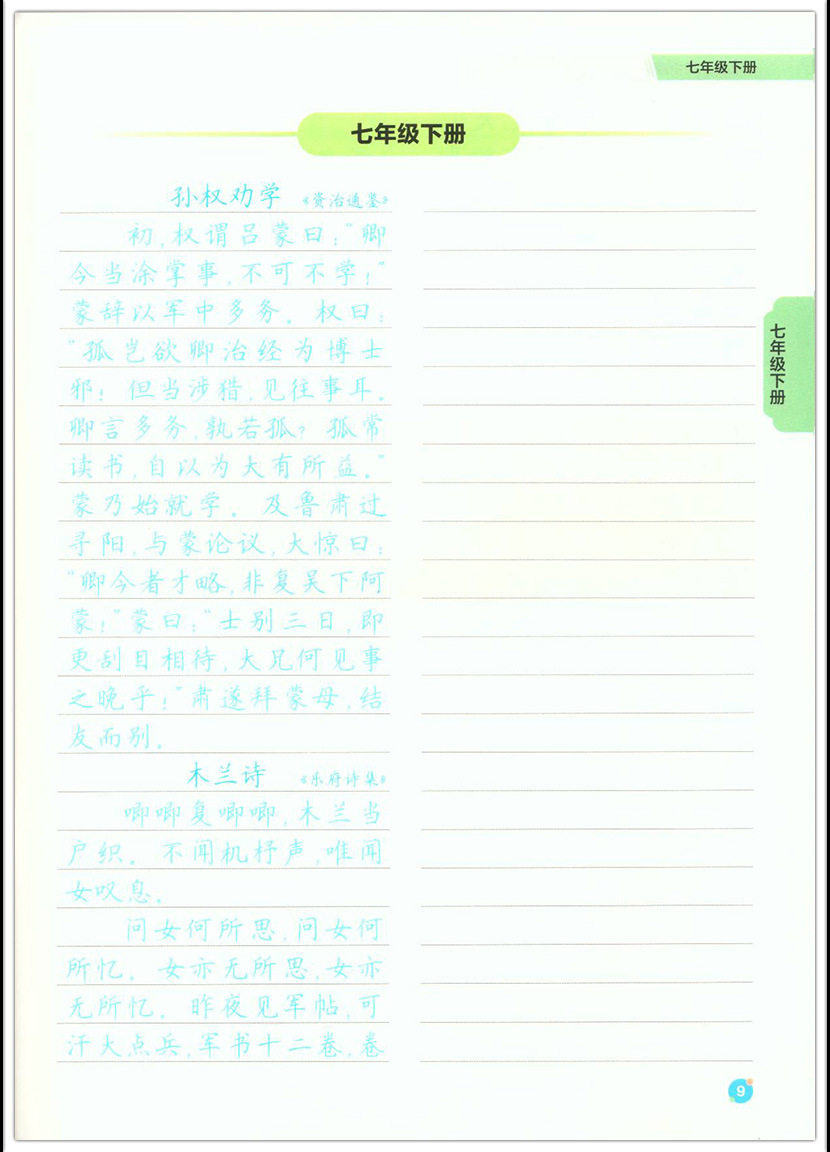 七年级下册
七年级下册
孙权劝学 《资治通鉴》
初,权谓吕蒙曰:“卿
今当涂掌事,不可不学!”
蒙辞以军中多务。权曰:
“孤岂欲卿治经为博士
邪!但当涉猎,见往事耳。
卿言多务,孰若孤?孤常
读书,自以为大有所益。”
蒙乃始就学。及鲁肃过
寻阳,与蒙论议,大惊曰:
“卿今者才略,非复吴下阿
蒙!”蒙曰:“士别三日,即
更刮目相待,大兄何见事
之晚乎!”肃遂拜蒙母,结
友而别。
木兰诗 《乐府诗集》
唧唧复唧唧,木兰当
户织。不闻机杼声,唯闻
女叹息。
问女何所思,问女何
所忆。女亦无所思,女亦
无所忆。昨夜见军帖,可
汗大点兵,军书十二卷,卷
七年级下册
9